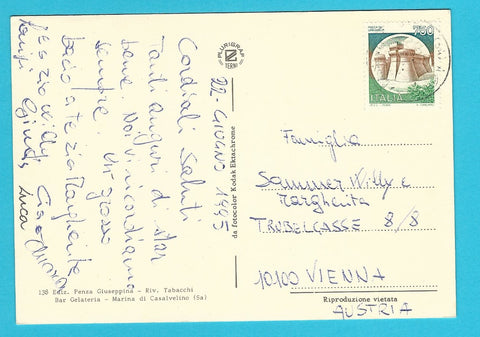 22-GIUGNO 1995
Cordiali Saluti
Tanti auguri di star
bene Noi vi ricordiamo
sempre. Un grosso
bacio a te zia Margherita
e zio Willy Ciao
Luca
PLURIGRAF
TERNI
da fotocolor Kodak Ektachrome
138 Ediz. Penza Giuseppina - Riv. Tabacchi
Bar Gelateria - Marina di Casalvelino (Sa)
750
ITALIA
Famiglia
Sammer Willy e
Margherita
TRUBELGASSE 8/8
10100 VIENNA
Riproduzione vietata
AUSTRIA